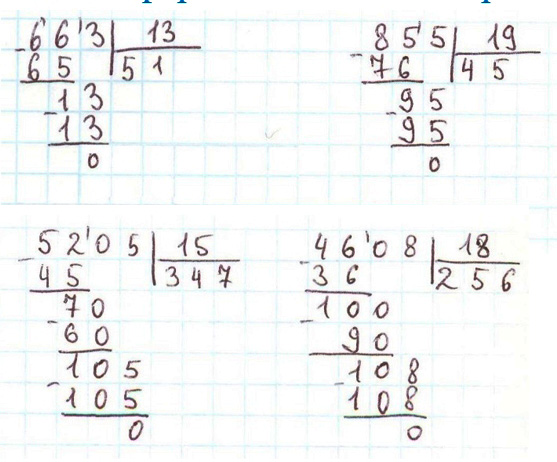 663 13
65 51
13
13
0
855 19
76 45
95
95
0
5205 15
45 347
70
60
105
105
0
4608 18
36 256
100
90
108
108
0